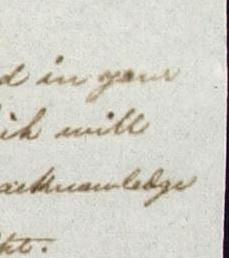 d in your
ich will
acknowledge
ht.